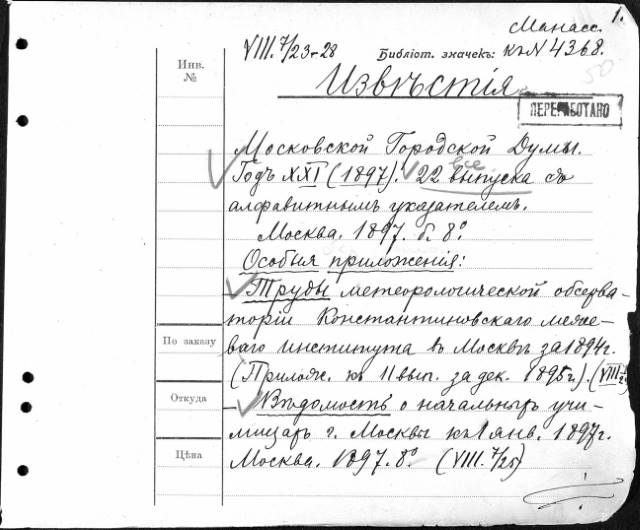 1.
Манасс.
VIII. 7/23-28 Библіот. значекъ: къ N 4368.
50
Инв. №
Извѣстія
ПЕРЕРАБОТАНО
Московской Городской Думы.
Годъ XXI (1897). 22 все выпуска съ
алфавитнымъ указателемъ.
Москва. 1897. б. 8º
Особыя приложенія:
Труды метеорологической обсерва-
торіи Константиновскаго меже-
По заказу
ваго института въ Москвѣ за 1894г.
(Прилож. къ 11 вып. за дек. 1895г.). (VIII
Откуда
– Вѣдомость о начальныхъ учи-
лищахъ г. Москвы къ 1 янв. 1897г.
Цѣна
Москва. 1897. 8º (VIII. 7/25)